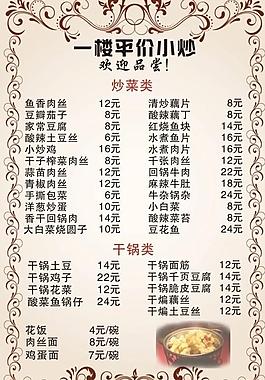 一楼平价小炒
欢迎品尝！
炒菜类
鱼香肉丝 12元 清炒藕片 8元
豆瓣茄子 8元 酸辣藕丁 8元
家常豆腐 8元 红烧鱼块 14元
酸辣土豆丝 6元 水煮鱼片 16元
小炒鸡 16元 水煮肉片 16元
干子榨菜肉丝 8元 千张肉丝 12元
蒜苗肉丝 12元 回锅牛肉 22元
青椒肉丝 12元 麻辣牛肚 18元
手撕包菜 6元 牛杂锅杂 24元
洋葱炒蛋 10元 小白菜 8元
香干回锅肉 14元 酸辣菜苔 8元
大白菜烧圆子 10元 豆花鱼 24元
干锅类
干锅土豆 14元 干锅面筋 12元
干锅鸡子 22元 干锅千页豆腐 14元
干锅花菜 12元 干锅脆皮豆腐 14元
酸菜鱼锅仔 24元 干煸藕丝 12元
干煸土豆丝 12元
花饭 4元/碗
肉丝面 8元/碗
鸡蛋面 7元/碗